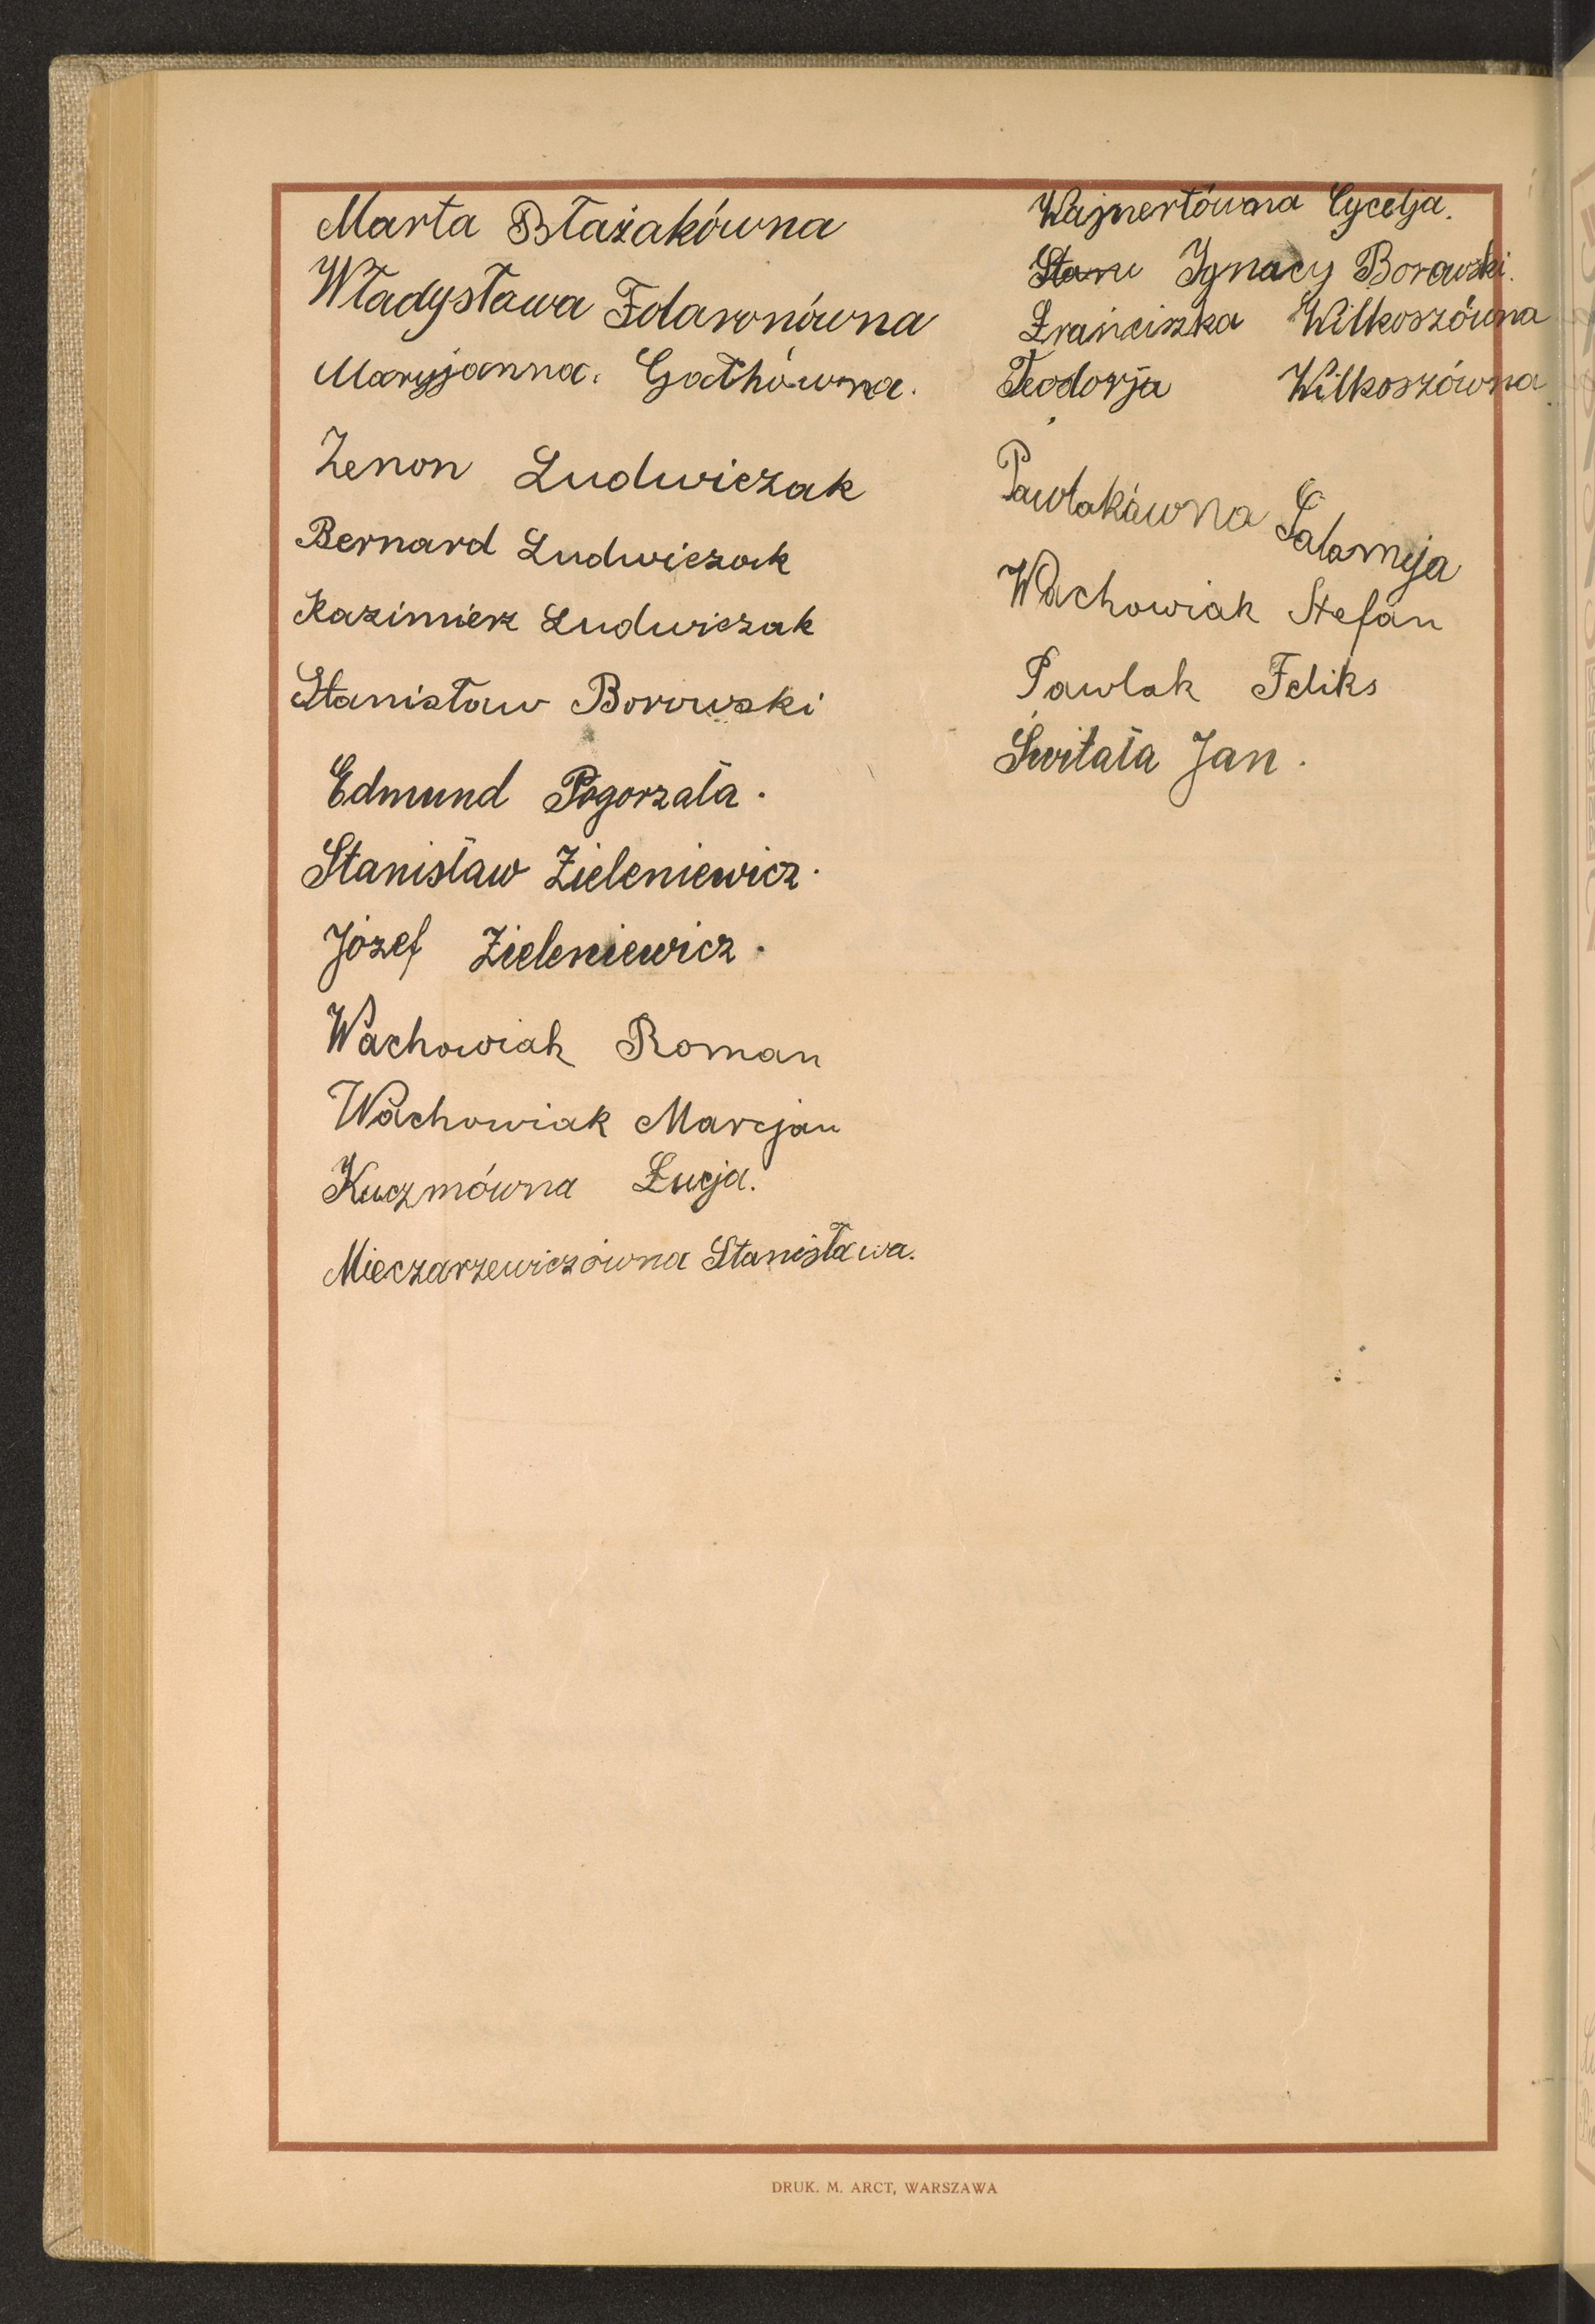 Marta Błażakówna
Władysława Folaronówna
Maryjanna. Gathówna.
Zenon Ludwiczak
Bernard Ludwiczak
Kazimierz Ludwiczak
Stanisław Borowski
Edmund Pogorzała.
Stanisław Zieleniewicz.
Józef Zieleniewicz.
Wachowiak Roman
Wachowiak Marcjan
Kuczmówna Łucja.
Mieczarzewiczówna Stanisława.
Wajnertówna Cycelja.
Ignacy Borowski.
Franciszka Wilkoszówna
Teodorja Wilkoszówna
Pawlakówna
Wachowiak Stefan
Pawlak Feliks
Świtała Jan.
DRUK. M. ARCT, WARSZAWA